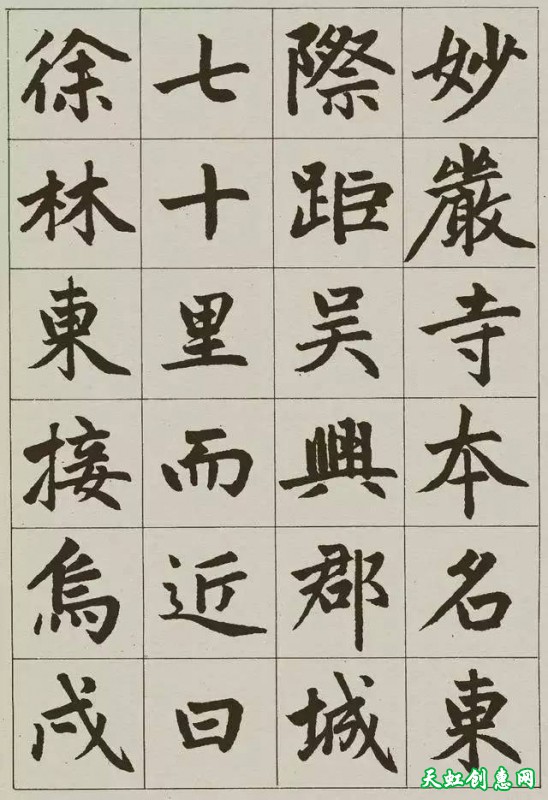 妙嚴寺本名東
際距吴興郡城
七十里而近曰
徐林東接烏戍
天虹创惠网